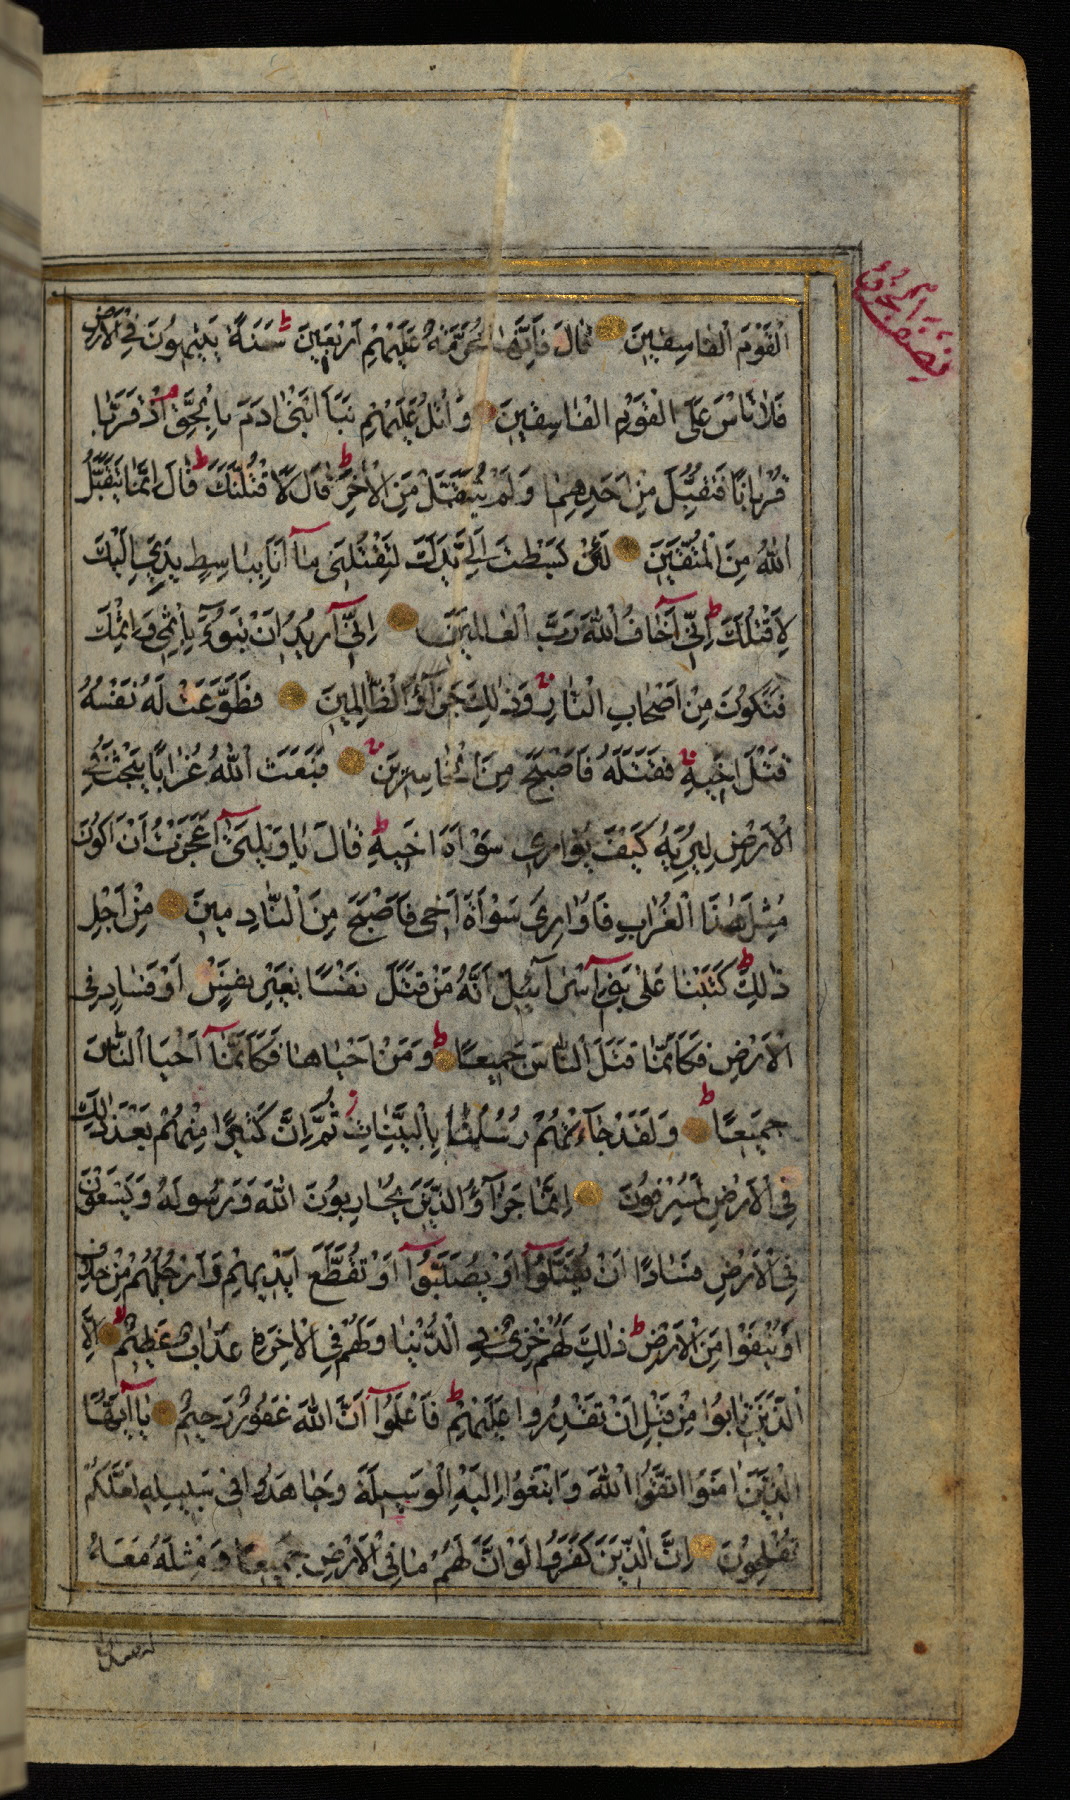 الْقَوْمِ الْفَاسِقِينَ قَالَ فَاِنَّهَا مُحَرَّمَةٌ عَلَيْهِمْ اَرْبَعِينَ سَنَةً يَتِيهُونَ فِي الْاَرْضِ
نِصْفُ الْجُزْوِ
فَلَا تَأْسَ عَلَى الْقَوْمِ الْفَاسِقِينَ وَاتْلُ عَلَيْهِمْ نَبَاَ ابْنَيْ اٰدَمَ بِالْحَقِّ اِذْ قَرَّبَا
قُرْبَانًا فَتُقُبِّلَ مِنْ اَحَدِهِمَا وَلَمْ يُتَقَبَّلْ مِنَ الْاٰخَرِ قَالَ لَاَقْتُلَنَّكَ قَالَ اِنَّمَا يَتَقَبَّلُ
اللّٰهُ مِنَ الْمُتَّقِينَ لَئِنْ بَسَطْتَ اِلَيَّ يَدَكَ لِتَقْتُلَنِي مَآ اَنَا بِبَاسِطٍ يَدِيَ اِلَيْكَ
لِاَقْتُلَكَ اِنِّيٓ اَخَافُ اللّٰهَ رَبَّ الْعَالَمِينَ اِنِّيٓ اُرِيدُ اَنْ تَبُوٓءَ بِاِثْمِي وَاِثْمِكَ
فَتَكُونَ مِنْ اَصْحَابِ النَّارِ وَذٰلِكَ جَزَآؤُ الظَّالِمِينَ فَطَوَّعَتْ لَهُ نَفْسُهُ
قَتْلَ اَخِيهِ فَقَتَلَهُ فَاَصْبَحَ مِنَ الْخَاسِرِينَ فَبَعَثَ اللّٰهُ غُرَابًا يَبْحَثُ فِي
الْاَرْضِ لِيُرِيَهُ كَيْفَ يُوَارِي سَوْاَةَ اَخِيهِ قَالَ يَا وَيْلَتٰىٓ اَعَجَزْتُ اَنْ اَكُونَ
مِثْلَ هٰذَا الْغُرَابِ فَاُوَارِيَ سَوْاَةَ اَخِي فَاَصْبَحَ مِنَ النَّادِمِينَ مِنْ اَجْلِ
ذٰلِكَ كَتَبْنَا عَلٰى بَنِيٓ اِسْرَآئِيلَ اَنَّهُ مَنْ قَتَلَ نَفْسًا بِغَيْرِ نَفْسٍ اَوْ فَسَادٍ فِي
الْاَرْضِ فَكَاَنَّمَا قَتَلَ النَّاسَ جَمِيعًا وَمَنْ اَحْيَاهَا فَكَاَنَّمَآ اَحْيَا النَّاسَ
جَمِيعًا وَلَقَدْ جَآءَتْهُمْ رُسُلُنَا بِالْبَيِّنَاتِ ثُمَّ اِنَّ كَثِيرًا مِنْهُمْ بَعْدَ ذٰلِكَ
فِي الْاَرْضِ لَمُسْرِفُونَ اِنَّمَا جَزَآؤُ الَّذِينَ يُحَارِبُونَ اللّٰهَ وَرَسُولَهُ وَيَسْعَوْنَ
فِي الْاَرْضِ فَسَادًا اَنْ يُقَتَّلُوٓا اَوْ يُصَلَّبُوٓا اَوْ تُقَطَّعَ اَيْدِيهِمْ وَاَرْجُلُهُمْ مِنْ خِلَافٍ
اَوْ يُنْفَوْا مِنَ الْاَرْضِ ذٰلِكَ لَهُمْ خِزْيٌ فِي الدُّنْيَا وَلَهُمْ فِي الْاٰخِرَةِ عَذَابٌ عَظِيمٌ اِلَّا
الَّذِينَ تَابُوا مِنْ قَبْلِ اَنْ تَقْدِرُوا عَلَيْهِمْ فَاعْلَمُوٓا اَنَّ اللّٰهَ غَفُورٌ رَحِيمٌ يَآ اَيُّهَا
الَّذِينَ اٰمَنُوا اتَّقُوا اللّٰهَ وَابْتَغُوا اِلَيْهِ الْوَسِيلَةَ وَجَاهِدُوا فِي سَبِيلِهِ لَعَلَّكُمْ
تُفْلِحُونَ اِنَّ الَّذِينَ كَفَرُوا لَوْ اَنَّ لَهُمْ مَا فِي الْاَرْضِ جَمِيعًا وَمِثْلَهُ مَعَهُ